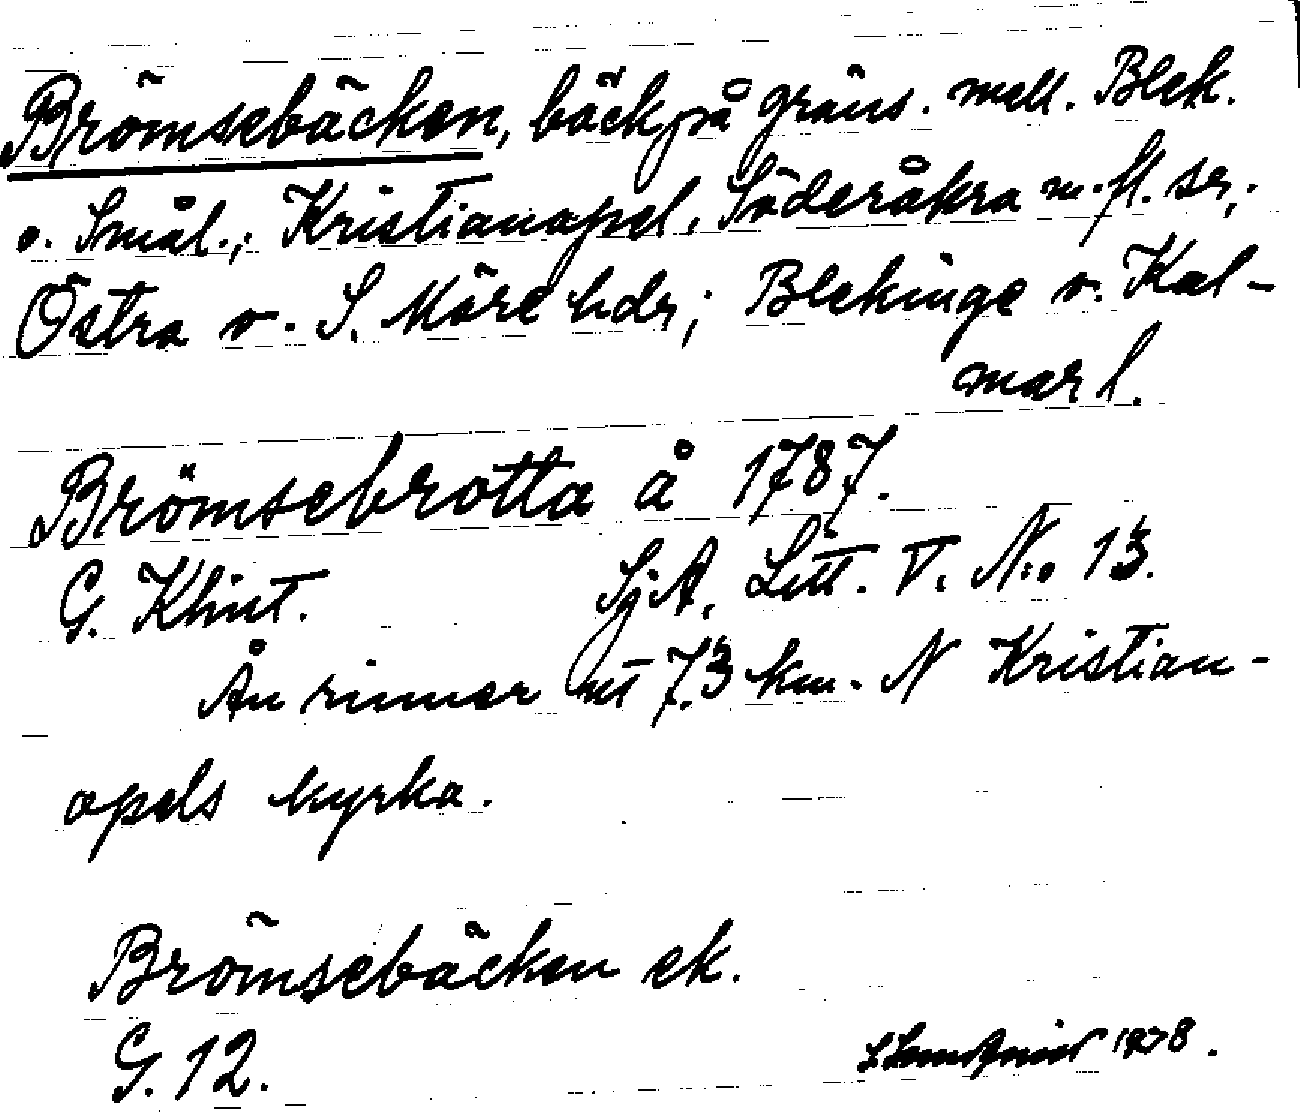 Brömsebäcken, bäck på gräns. mell. Blek.
o. Smål.; Kristianopel, Söderåkra m. fl. sr,;
Östra o. S. Möre hdr,; Blekinge o. Kal-
mar l.
Brömsebrotta å 1787.
G. Klint. SjA, Litt. V. No 13.
Ån rinner ut 7.3 km. N Kristian-
opels kyrka.
Brömsebäcken ek.
G. 12. 1928.